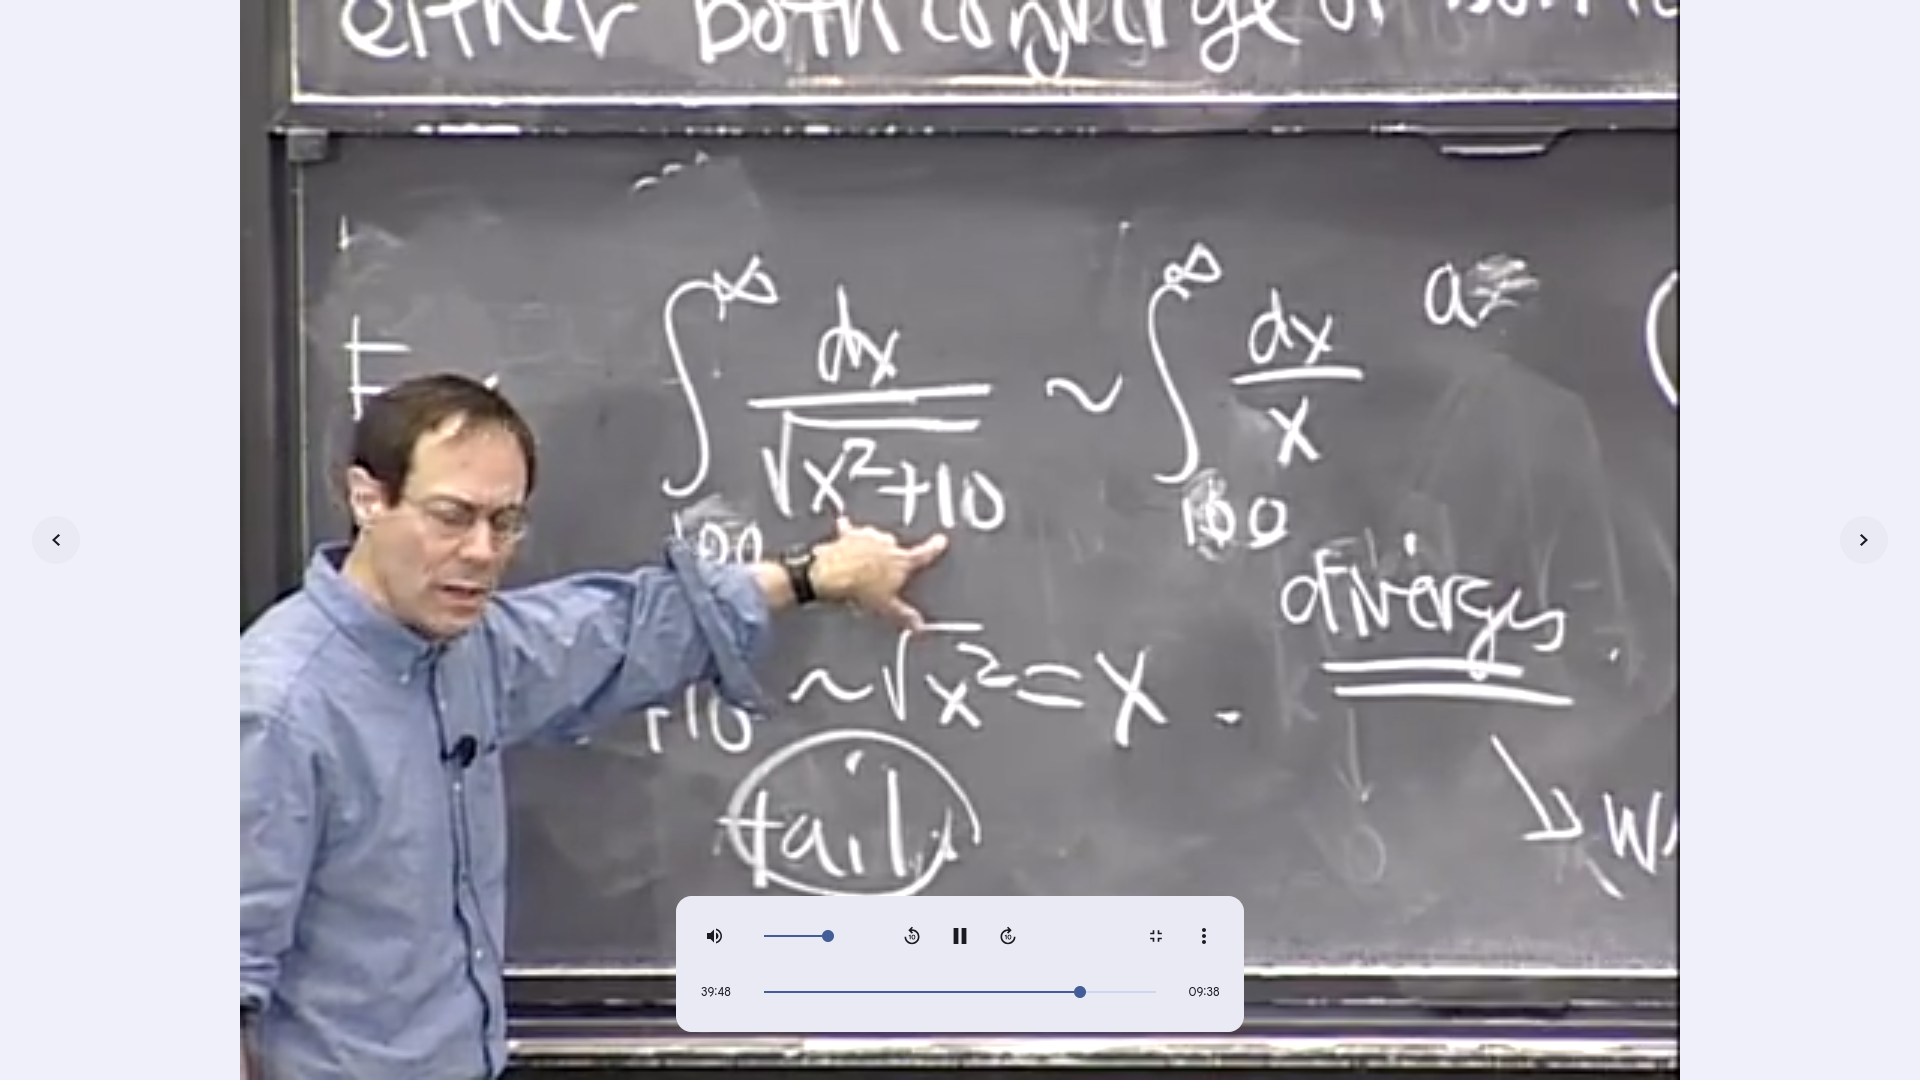 either both converge or both
∫₁₀₀^∞ dx/√(x²+10) ~ ∫₁₀₀^∞ dx/x
diverges.
+10 ~ √x² = x.
tail
39:48
09:38